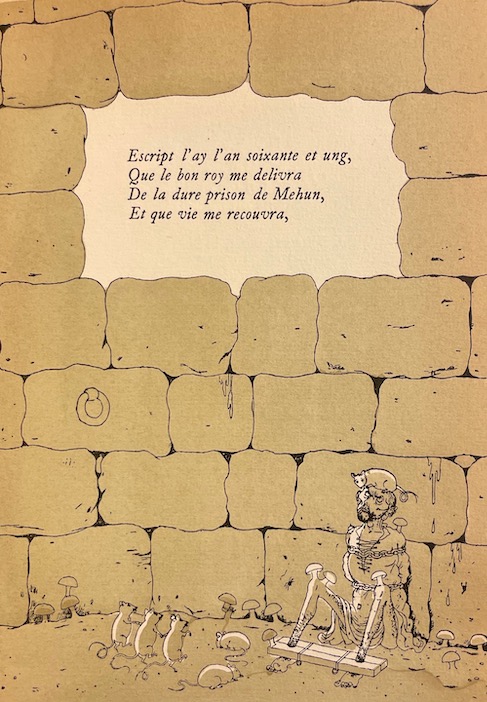 Escript l'ay l'an soixante et ung,
Que le bon roy me delivra
De la dure prison de Mehun,
Et que vie me recouvra,